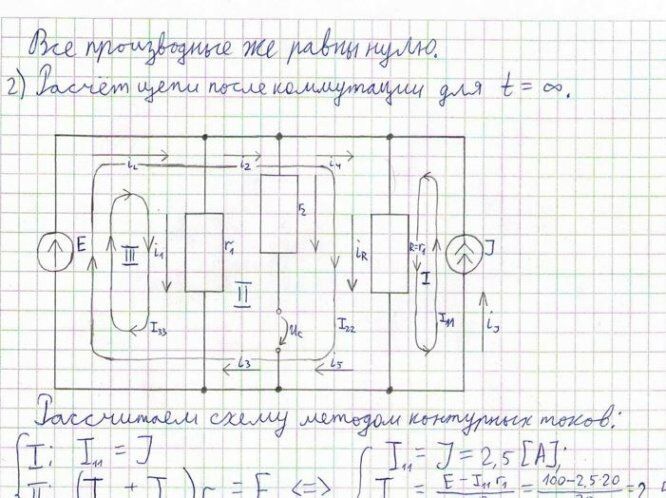 Все производные же равны нулю.
2) Расчёт цепи после коммутации для t = ∞.
iL i2 i4
E III i1 r1 r2 iR R=r1 I J
II
I33 uc I22 I11 iJ
i3 i5
Рассчитаем схему методом контурных токов:
I: I11 = J I11 = J = 2,5 [A];
II: = E <=> = E - I11 r1 = 100-2,5·20